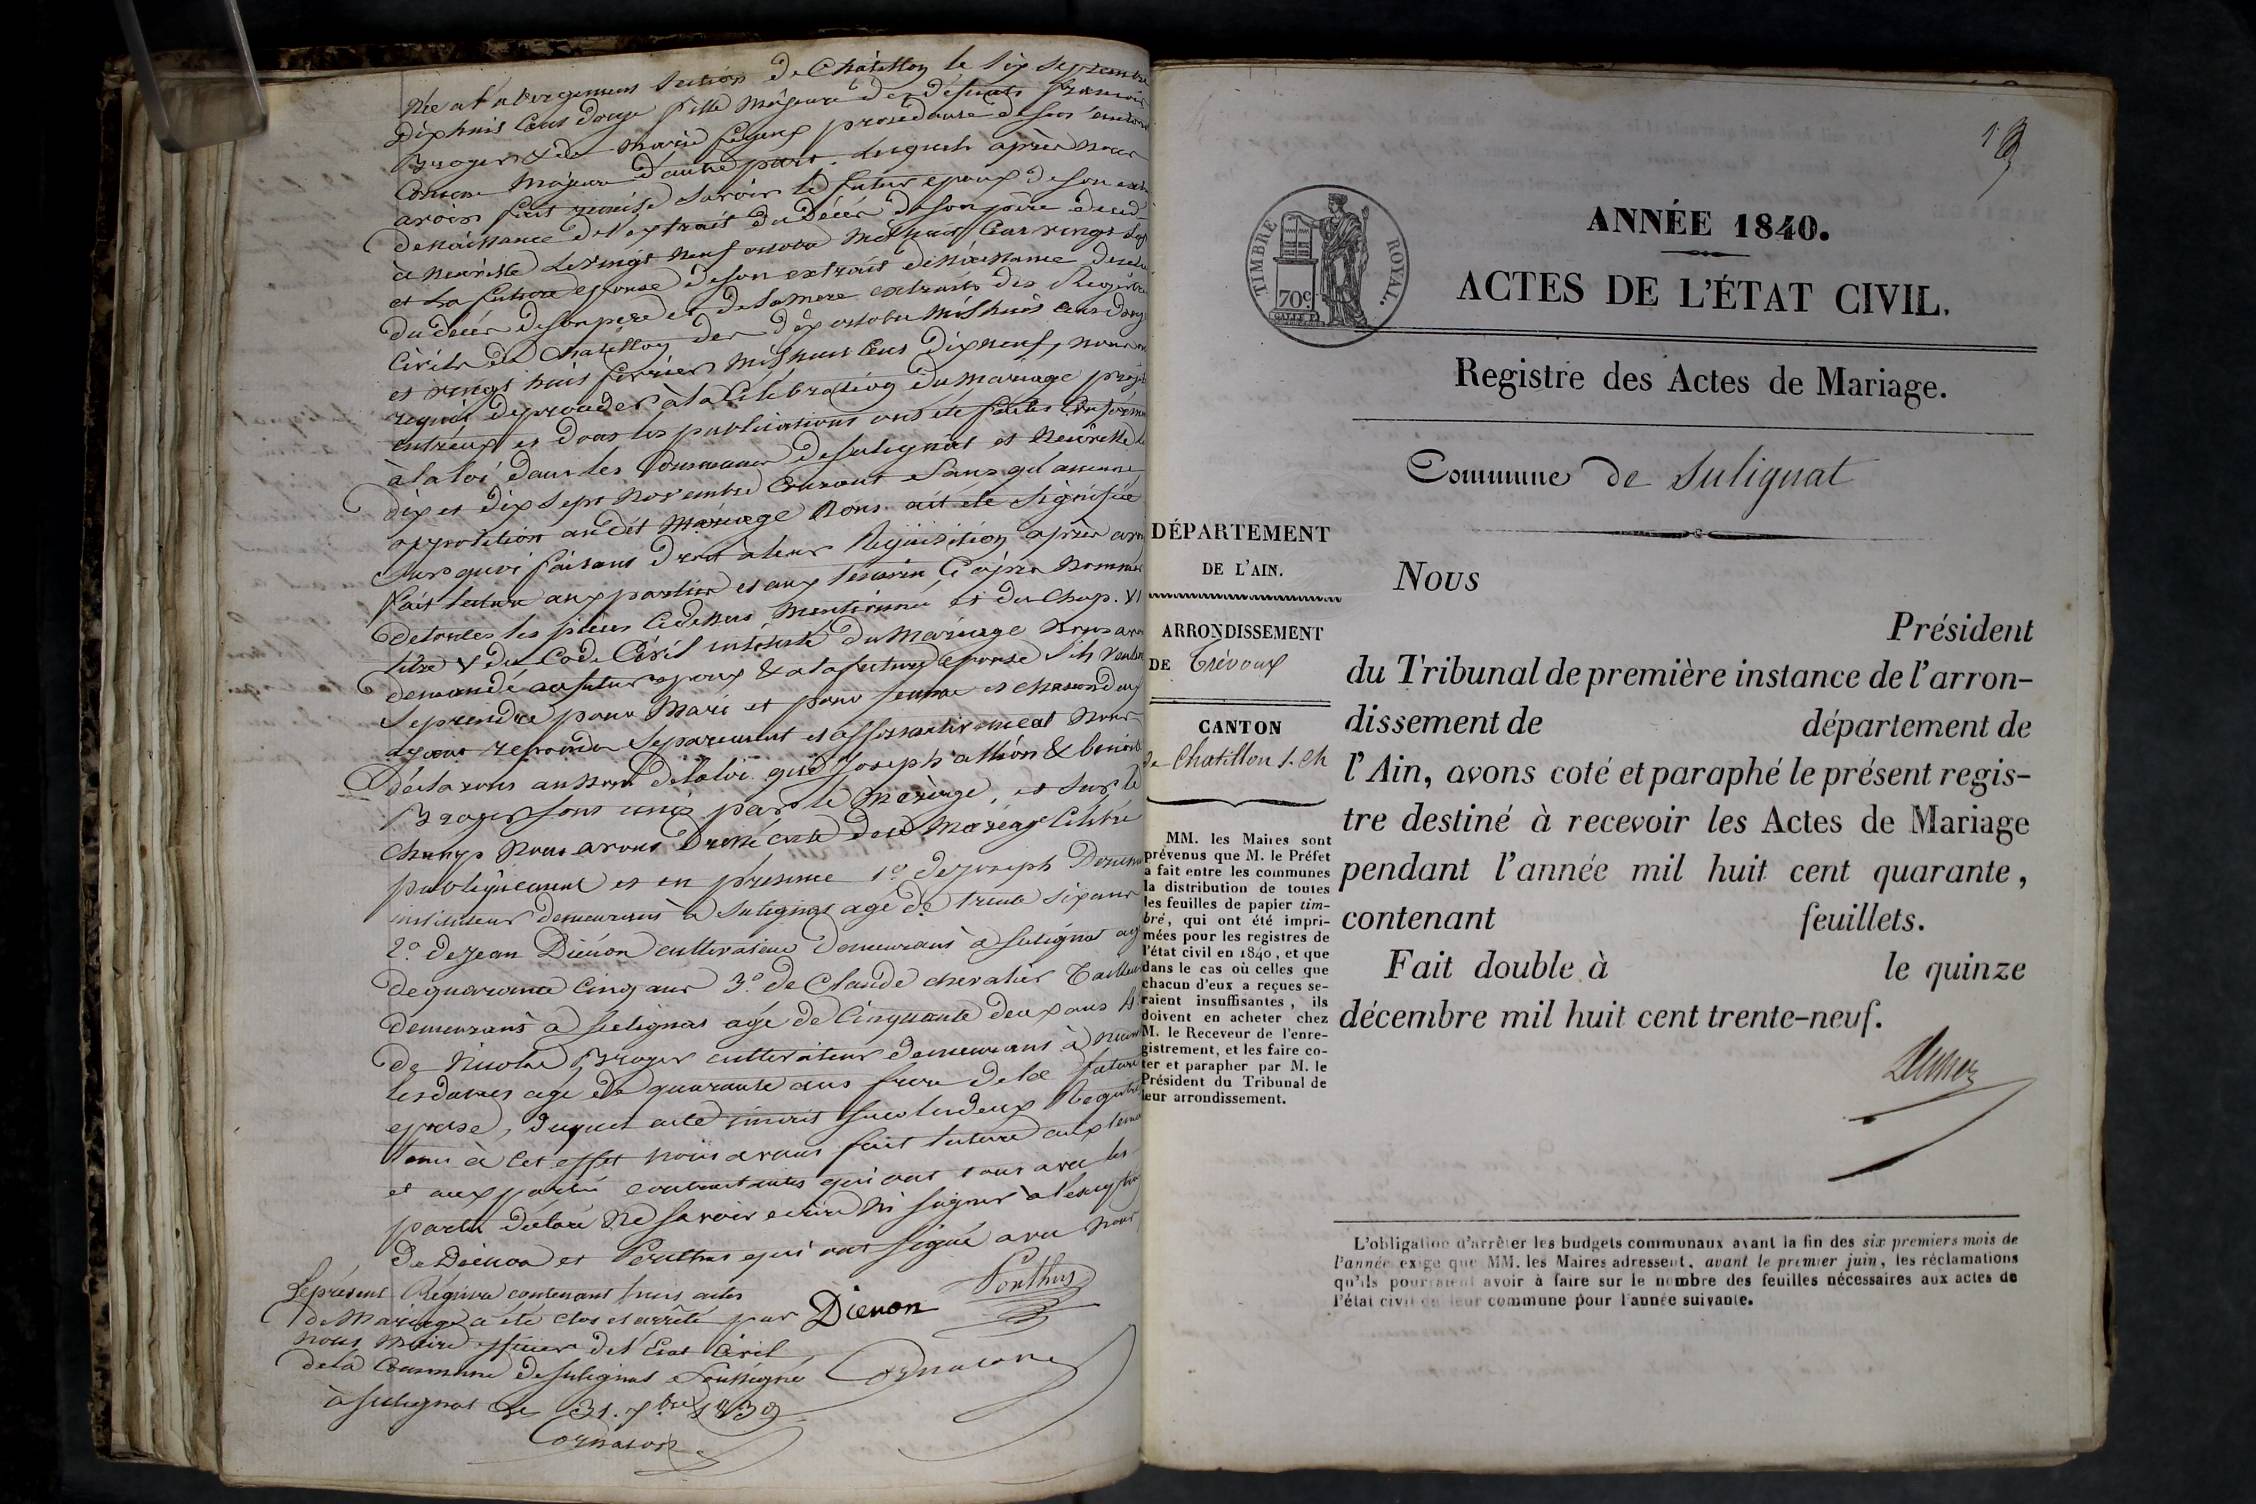 née à l'abergement section de Châtillon le six septembre
dix huit cent douze fille majeure des défunts françois
Broyer & de Marie
comme majeure d'autre part. Lesquels après nous
avoir fait remise savoir le futur epoux de son
de naissance de l'extrait du décès de son père
à neuville le vingt neuf octobre mil huit cent vingt
et la future epouse de son extrait de naissance
du décès de son pere et de sa mere extraits des Registres
Civils de Châtillon des dix octobre mil huit cent douze
et vingt huit février mil huit cent dix neuf, nous ont
requis de proceder à la Célébration du mariage projeté
entr'eux et dont les publications ont été faites
à la loi dans les Communes de sulignat et Neuville
dix et dix sept novembre Courant sans qu'aucune
opposition audit mariage nous ait été signifiée
sur quoi faisant droit à leur Réquisition après avoir
fait lecture aux parties et aux témoins ci après nommés
de toutes les pièces cidessus mentionnées et du Chap. VI
titre V du Code Civil intitulé du Mariage nous avons
demandé au futur epoux & a la future epouse s'ils veulent
se prendre pour mari et pour femme et chacun d'eux
ayant repondu séparement et affirmativement nous
déclarons au nom de la loi que Joseph & benoite
Broyer sont unis par le mariage, et sur le
champ nous avons dressé acte de ce Mariage célébré
publiquement et en présence 1.º de Joseph
instituteur demeurant à Sulignat agé de trente six ans
2.º de Jean Diénon cultivateur demeurant à Sulignat agé
de quarante cinq ans 3.º de Claude chevalier Tailleur
demeurant à Sulignat agé de Cinquante deux ans
de Nicolas Broyer cultivateur demeurant à
les dames agé de quarante ans frere de la future
epouse, duquel acte inscrit sur les deux Registres
tenus à cet effet nous avons fait lecture aux temoins
et aux parties contractantes qui ont tous avec les
parties déclaré ne savoir ecrire ni signer à l'exception
de Diénon et Ponthus qui ont signé avec nous
Ponthus
Le présent Régistre contenant trois actes
de Mariage a été clos et arrêté par
Diénon
nous Maire officier de l'Etat Civil
de la Commune de Sulignat soussigné
Cornaton
à Sulignat le 31. Xbre 1839
Cornaton
TIMBRE ROYAL.
70c
ANNÉE 1840.
ACTES DE L'ÉTAT CIVIL.
Registre des Actes de Mariage.
Commune de Sulignat
DÉPARTEMENT
DE L'AIN.
ARRONDISSEMENT
DE Trévoux
CANTON
de Chatillon s. Ch
MM. les Maires sont
prévenus que M. le Préfet
a fait entre les communes
la distribution de toutes
les feuilles de papier tim-
bré, qui ont été impri-
mées pour les registres de
l'état civil en 1840, et que
dans le cas où celles que
chacun d'eux a reçues se-
raient insuffisantes, ils
doivent en acheter chez
M. le Receveur de l'enre-
gistrement, et les faire co-
ter et parapher par M. le
Président du Tribunal de
leur arrondissement.
Nous
Président
du Tribunal de première instance de l'arron-
dissement de département de
l'Ain, avons coté et paraphé le présent regis-
tre destiné à recevoir les Actes de Mariage
pendant l'année mil huit cent quarante,
contenant feuillets.
Fait double à le quinze
décembre mil huit cent trente-neuf.
L'obligation d'arrêter les budgets communaux avant la fin des six premiers mois de
l'année exige que MM. les Maires adressent, avant le premier juin, les réclamations
qu'ils pourraient avoir à faire sur le nombre des feuilles nécessaires aux actes de
l'état civil de leur commune pour l'année suivante.